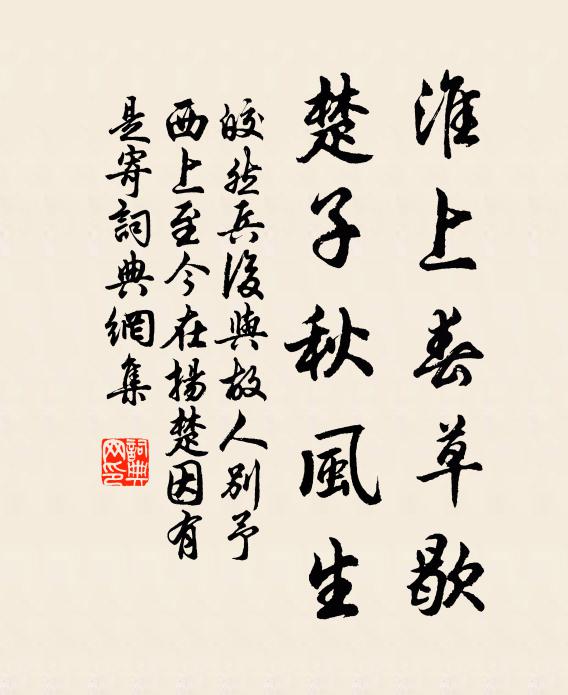 淮上春草歇
楚子秋風生
皎然兵後與故人別予
西上至今在揚楚因有
是寄詞典網集
詞典网印